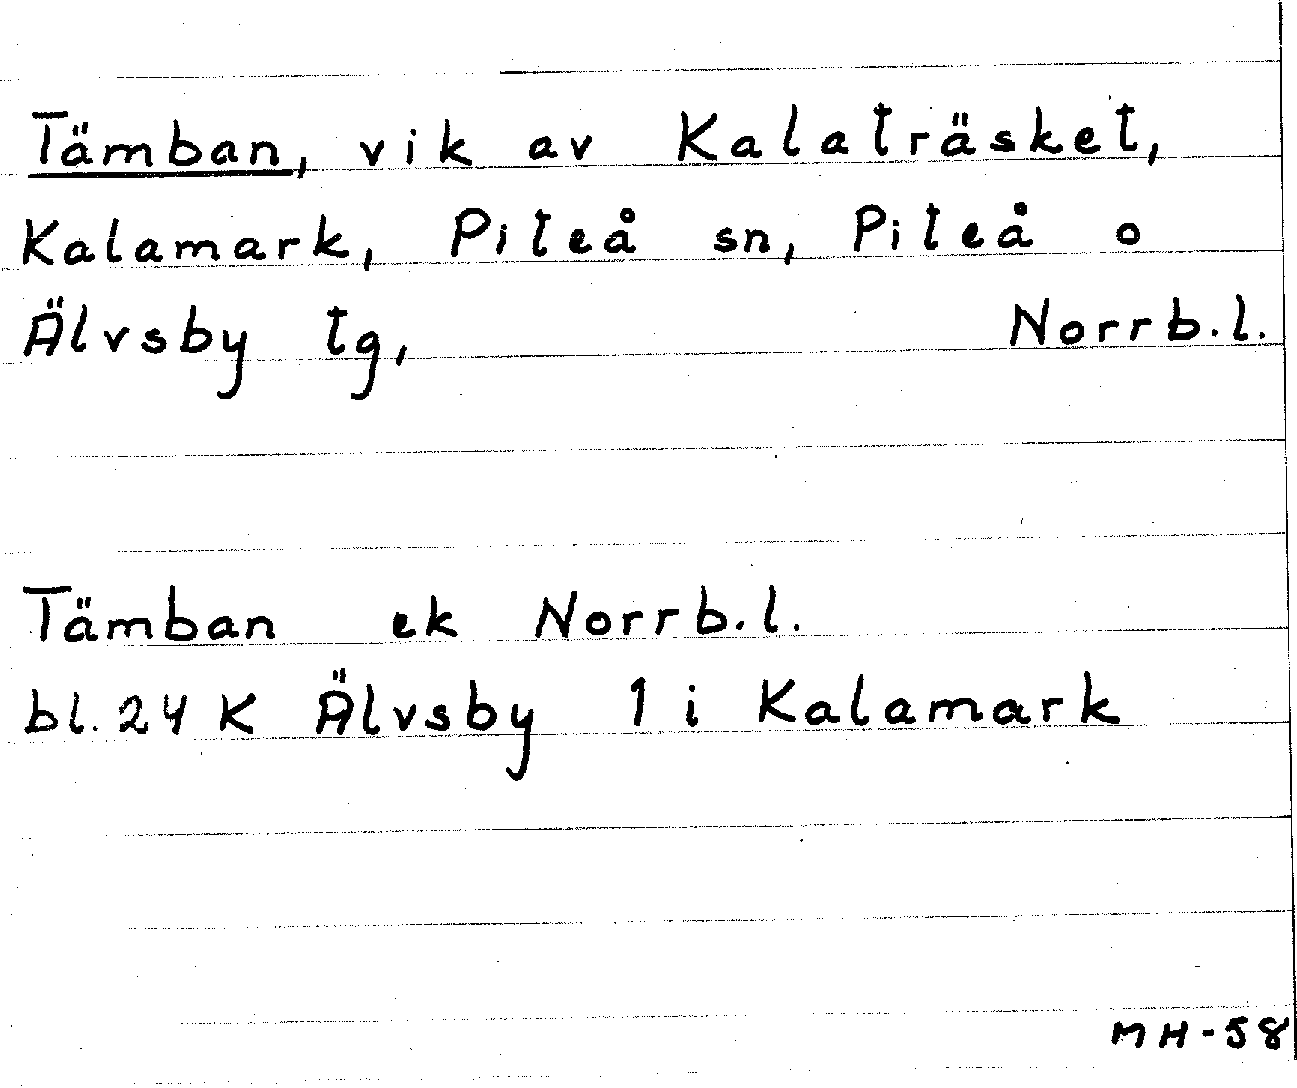 Tämban, vik av Kalaträsket,
Kalamark, Piteå sn, Piteå o
Älvsby tg, Norrb.l.
Tämban ek Norrb.l.
bl. 24 K Älvsby 1 i Kalamark
MH-58